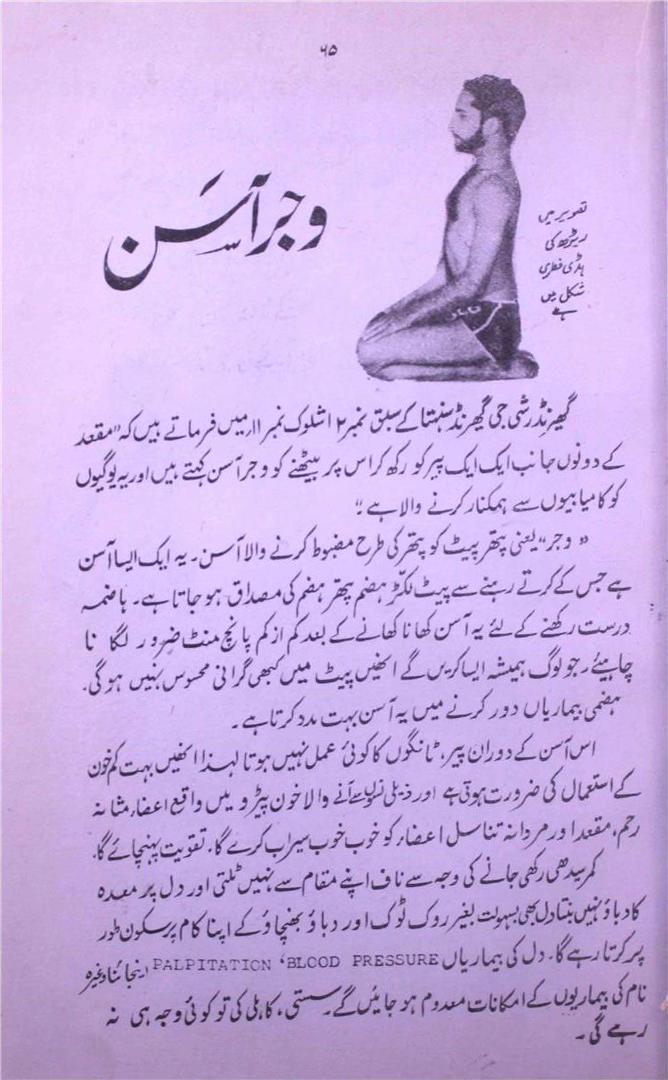 ۶۵
وجر آسن
تصویر میں
ریڑھ کی
ہڈی فطری
شکل میں
ہے
گھیرنڈ رشی جی گھیرنڈ سنہتا کے سبق نمبر ۲ اشلوک نمبر ۱۱ میں فرماتے ہیں کہ "مقعد
کے دونوں جانب ایک ایک پیر کو رکھ کر اس پر بیٹھنے کو وجر آسن کہتے ہیں اور یہ یوگیوں
کو کامیابیوں سے ہمکنار کرنے والا ہے"۔
"وجر" یعنی پتھر پیٹ کو پتھر کی طرح مضبوط کرنے والا آسن۔ یہ ایک ایسا آسن
ہے جس کے کرتے رہنے سے پیٹ لکڑ ہضم پتھر ہضم کی مصداق ہو جاتا ہے۔ ہاضمہ
درست رکھنے کے لئے یہ آسن کھانا کھانے کے بعد کم از کم پانچ منٹ ضرور لگانا
چاہیئے۔ جو لوگ ہمیشہ ایسا کریں گے انھیں پیٹ میں کبھی گرانی محسوس نہیں ہوگی۔
ہضمی بیماریاں دور کرنے میں یہ آسن بہت مدد کرتا ہے۔
اس آسن کے دوران پیر، ٹانگوں کا کوئی عمل نہیں ہوتا لہذا انھیں بہت کم خون
کے استعمال کی ضرورت ہوتی ہے اور ذیلی نسوں سے آنے والا خون پیڑو میں واقع اعضاء مثانہ
رحم، مقعد اور مردانہ تناسل اعضاء کو خوب خوب سیراب کرے گا، تقویت پہنچائے گا۔
کمر سیدھی رکھی جانے کی وجہ سے ناف اپنے مقام سے نہیں ٹلتی اور دل پر معدہ
کا دباؤ نہیں بنتا دل بھی بسہولت بغیر روک ٹوک اور دباؤ بھنچاؤ کے اپنا کام پرسکون طور
پر کرتا رہے گا۔ دل کی بیماریاں PALPITATION 'BLOOD PRESSURE اینجائنا وغیرہ
نام کی بیماریوں کے امکانات معدوم ہو جائیں گے۔ سستی، کاہلی کی تو کوئی وجہ ہی نہ
رہے گی۔